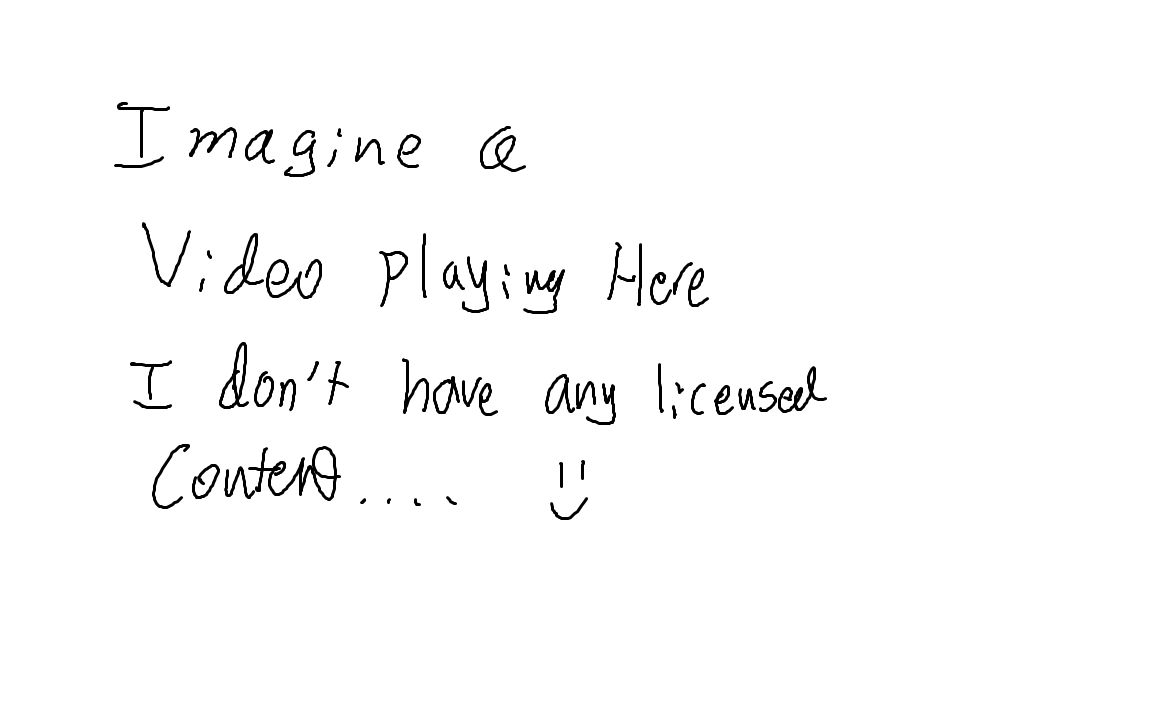 Imagine a
Video playing Here
I don't have any licensed
Content....